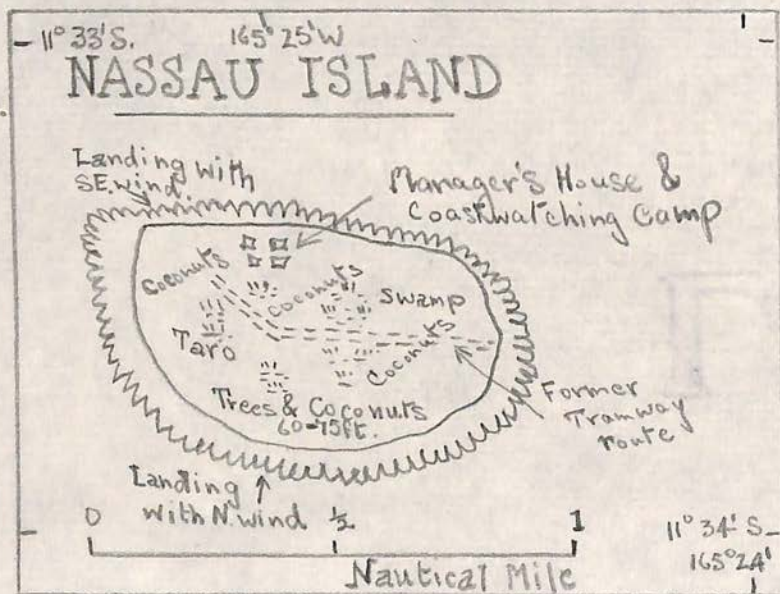 11° 33' S. 165° 25' W
NASSAU ISLAND
Landing with
SE. wind
Manager's House &
Coastwatching Camp
Coconuts
Coconuts
Swamp
Taro
Coconuts
Trees & Coconuts
60-75ft.
Former
Tramway
route
Landing
with N. wind
0 ½ 1
Nautical Mile
11° 34' S
165° 24'